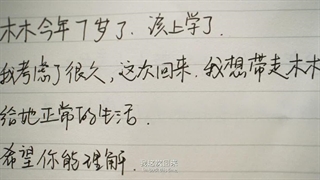 木木今年7岁了.该上学了.
我考虑了很久,这次回来.我想带走木木
给她正常的生活.
希望你能理解